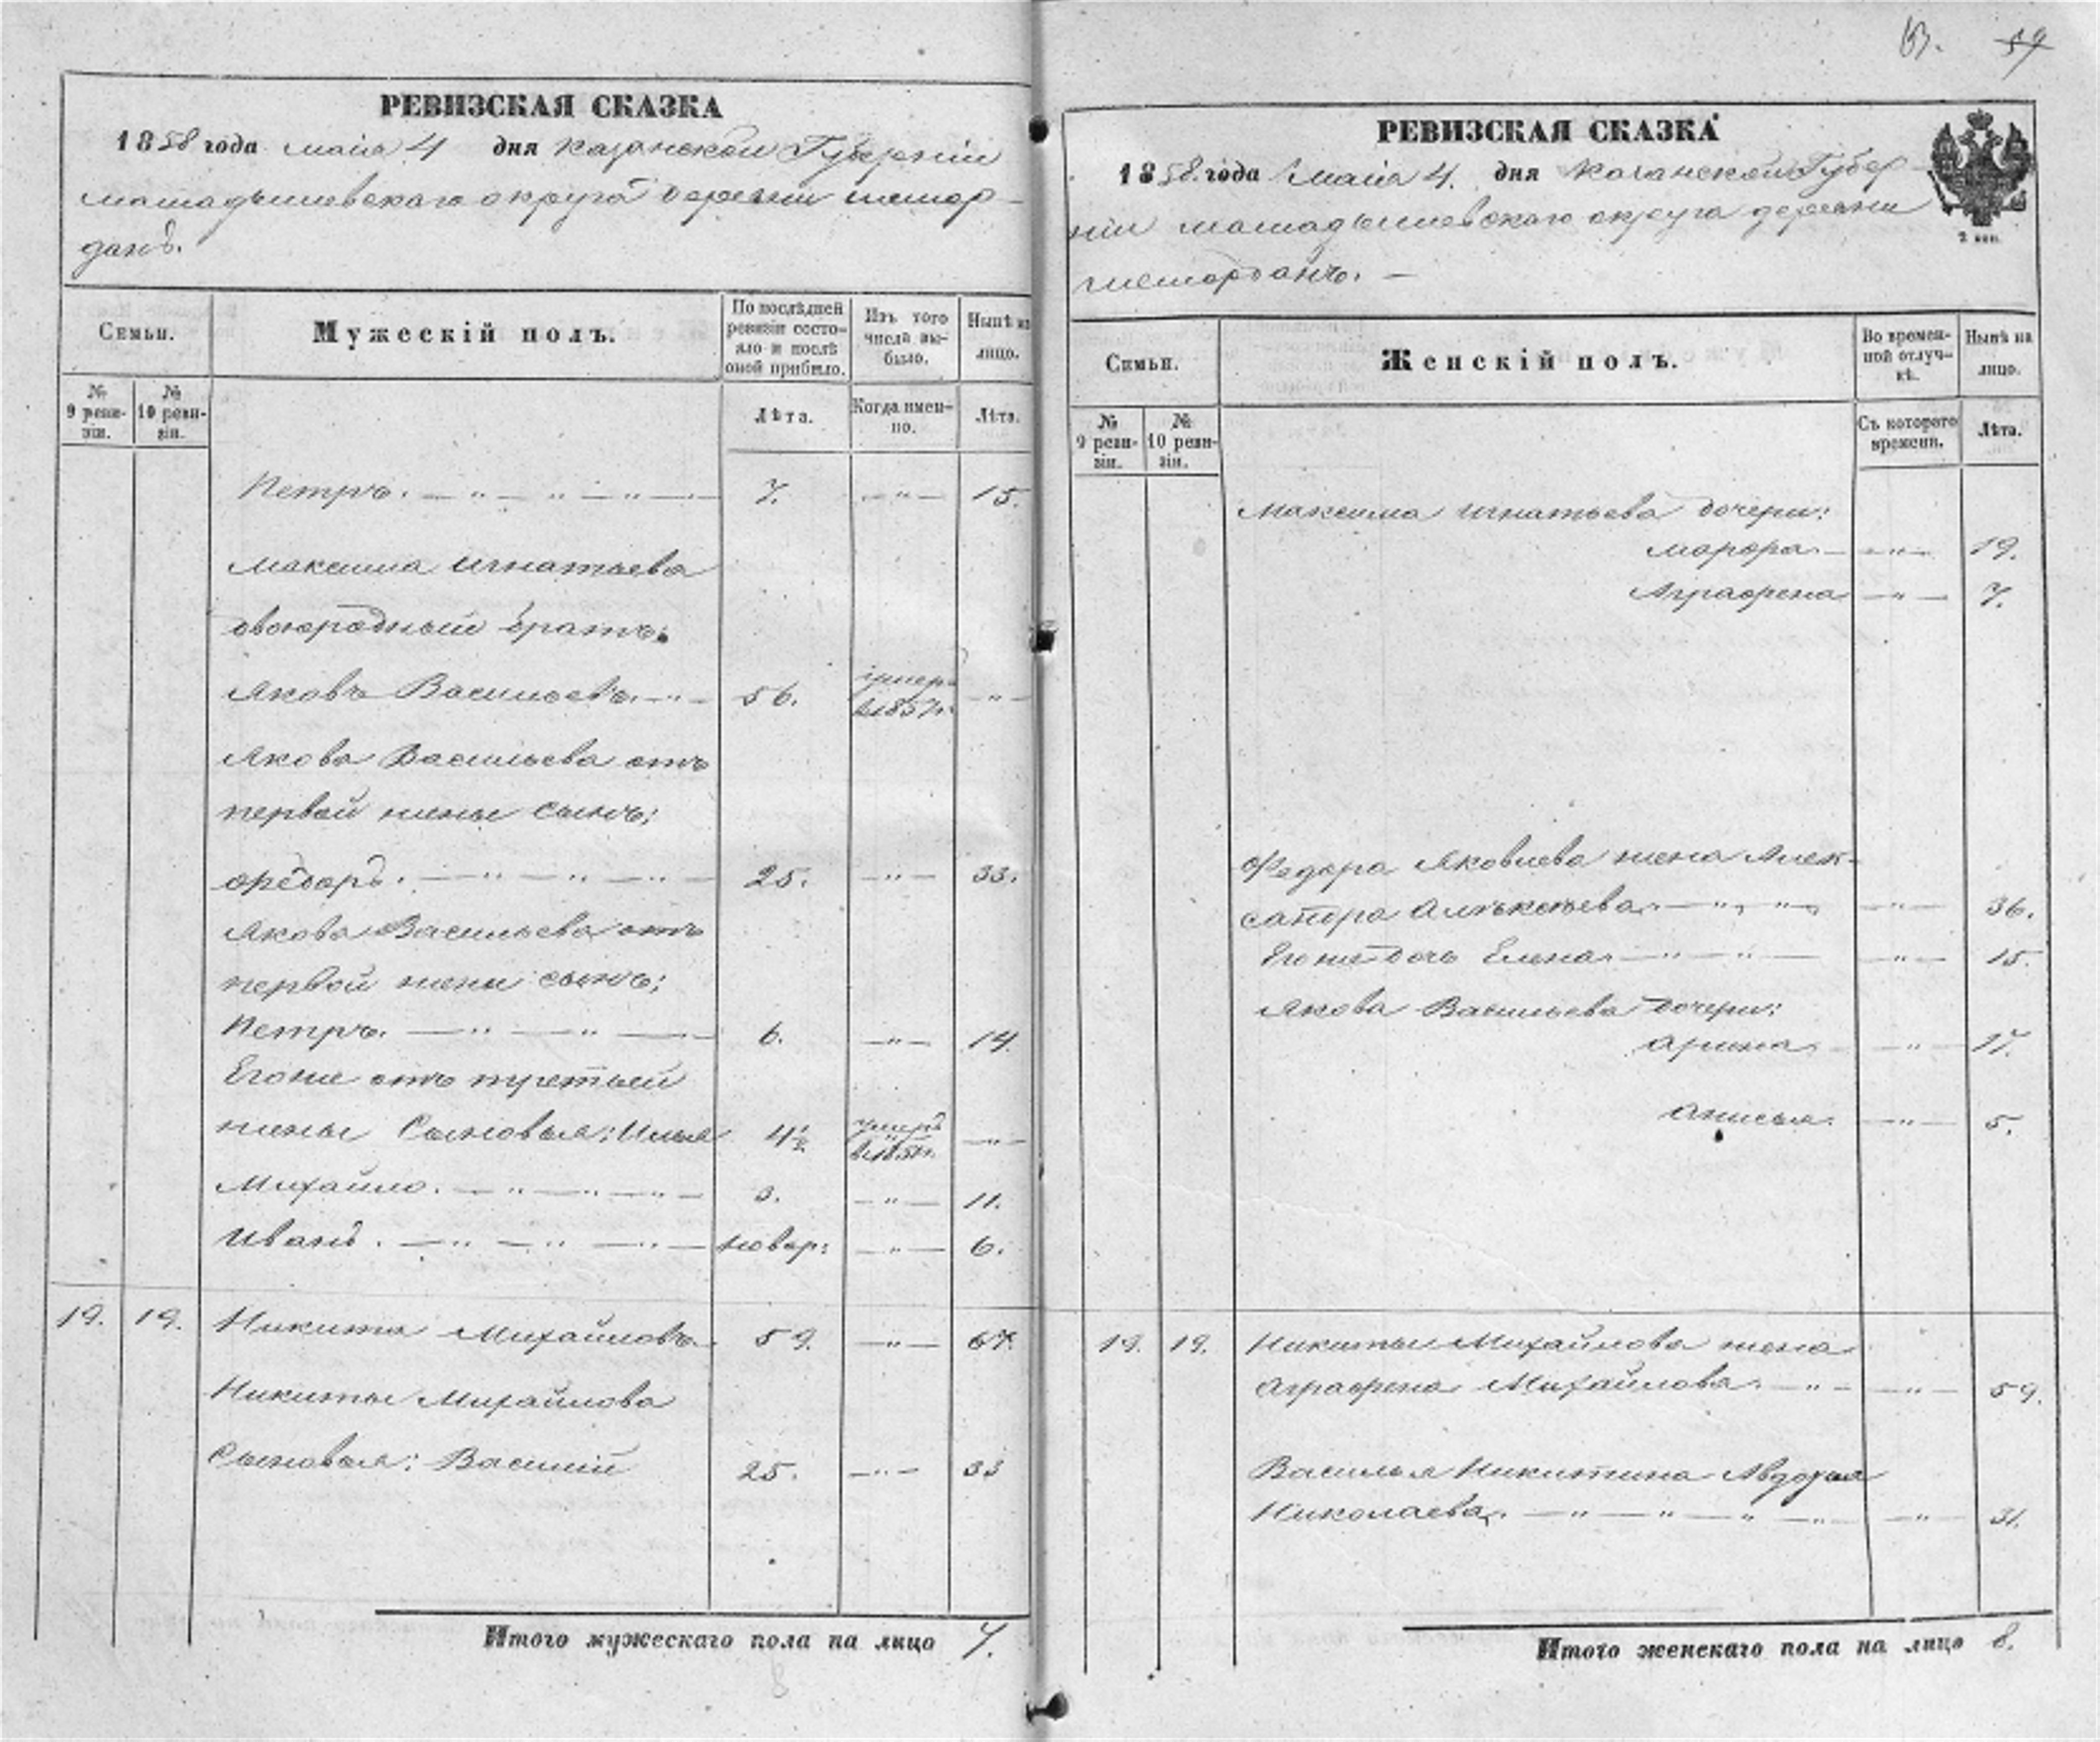 РЕВИЗСКАЯ СКАЗКА
1858 года маія 4 дня Казанской Губерніи
мамадышевскаго округа деревни шемор-
данъ.
Семьи.
Мужескій полъ.
По послѣдней ревизіи состояло и послѣ оной прибыло.
Изъ того числа выбыло.
Нынѣ на лицо.
№ 9 ревизіи.
№ 10 ревизіи.
Лѣта.
Когда именно.
Лѣта.
Петръ. — " — " — " — 7. — " — 15.
Максима Игнатьева
двоюродный братъ:
Яковъ Васильевъ. — " — 56. умеръ в 1857г. — " —
Якова Васильева отъ
первой жены сынъ:
Ѳедоръ. — " — " — " — 25. — " — 33.
Якова Васильева отъ
первой жены сынъ:
Петръ. — " — " — 6. — " — 14.
Егоже отъ третьей
жены Сыновья: Илья 4½ умеръ — " —
Михайло. — " — " — " — 3. — " — 11.
Иванъ. — " — " — " — новор: — " — 6.
19. 19. Никита Михайловъ. 59. — " — 67.
Никиты Михайлова
Сыновья: Василий 25. — " — 33
Итого мужескаго пола на лицо 7.
63. 59
РЕВИЗСКАЯ СКАЗКА
1858. года Маія 4. дня Казанской Губер-
ніи мамадышевскаго округа деревни
шеморданъ. —
2 коп.
Семьи.
Женскій полъ.
Во временной отлучкѣ.
Нынѣ на лицо.
№ 9 ревизіи.
№ 10 ревизіи.
Съ котораго времени.
Лѣта.
Максима Игнатьева дочери:
Марфа. — — " — 19.
Аграфена — " — 7.
Федора Яковлева жена Алек-
сандра Алѣксѣева. — " — " — — " — 36.
Егоже дочь Елена. — " — " — — " — 15.
Якова Васильева дочери:
Арина — " — 17.
Анисья. — " — 5.
19. 19. Никиты Михайлова жена
Аграфена Михайлова. — " — — " — 59.
Василья Никитина Авдотья
Николаева. — " — " — " — " — " — 31.
Итого женскаго пола на лицо 8.